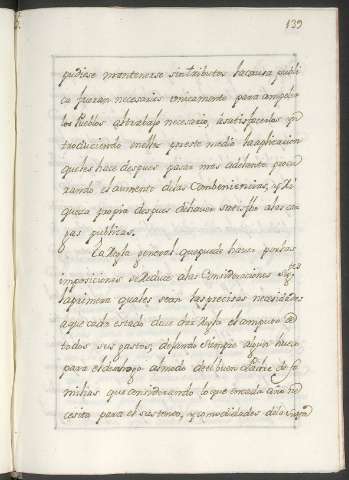 139
pudiese mantenerse sin tributos la causa publi
ca fueran necesarios unicamente para ampeler
los Pueblos al trabajo necesario, à satisfacerlos yn
troduciendo en ellos por este medio la aplicacion
que les hace despues pasar mas adelante procu
rando el aumento de las Combeniencias, y Ri
queza propia despues de haver satisfho a las car
gas publicas.
La Regla general que puede haver por las
imposiciones se Reduce a las Consideraciones sigtes
la primera quales sean las precisas necesidades
a que cada estado deve dar Regla el amparo de
todos sus gastos, dejando siempre algun hueco
para el desahogo al modo de el buen Padre de fa
milias que considerando lo que en cada año ne
cesita para el sustento, y comodidades de la